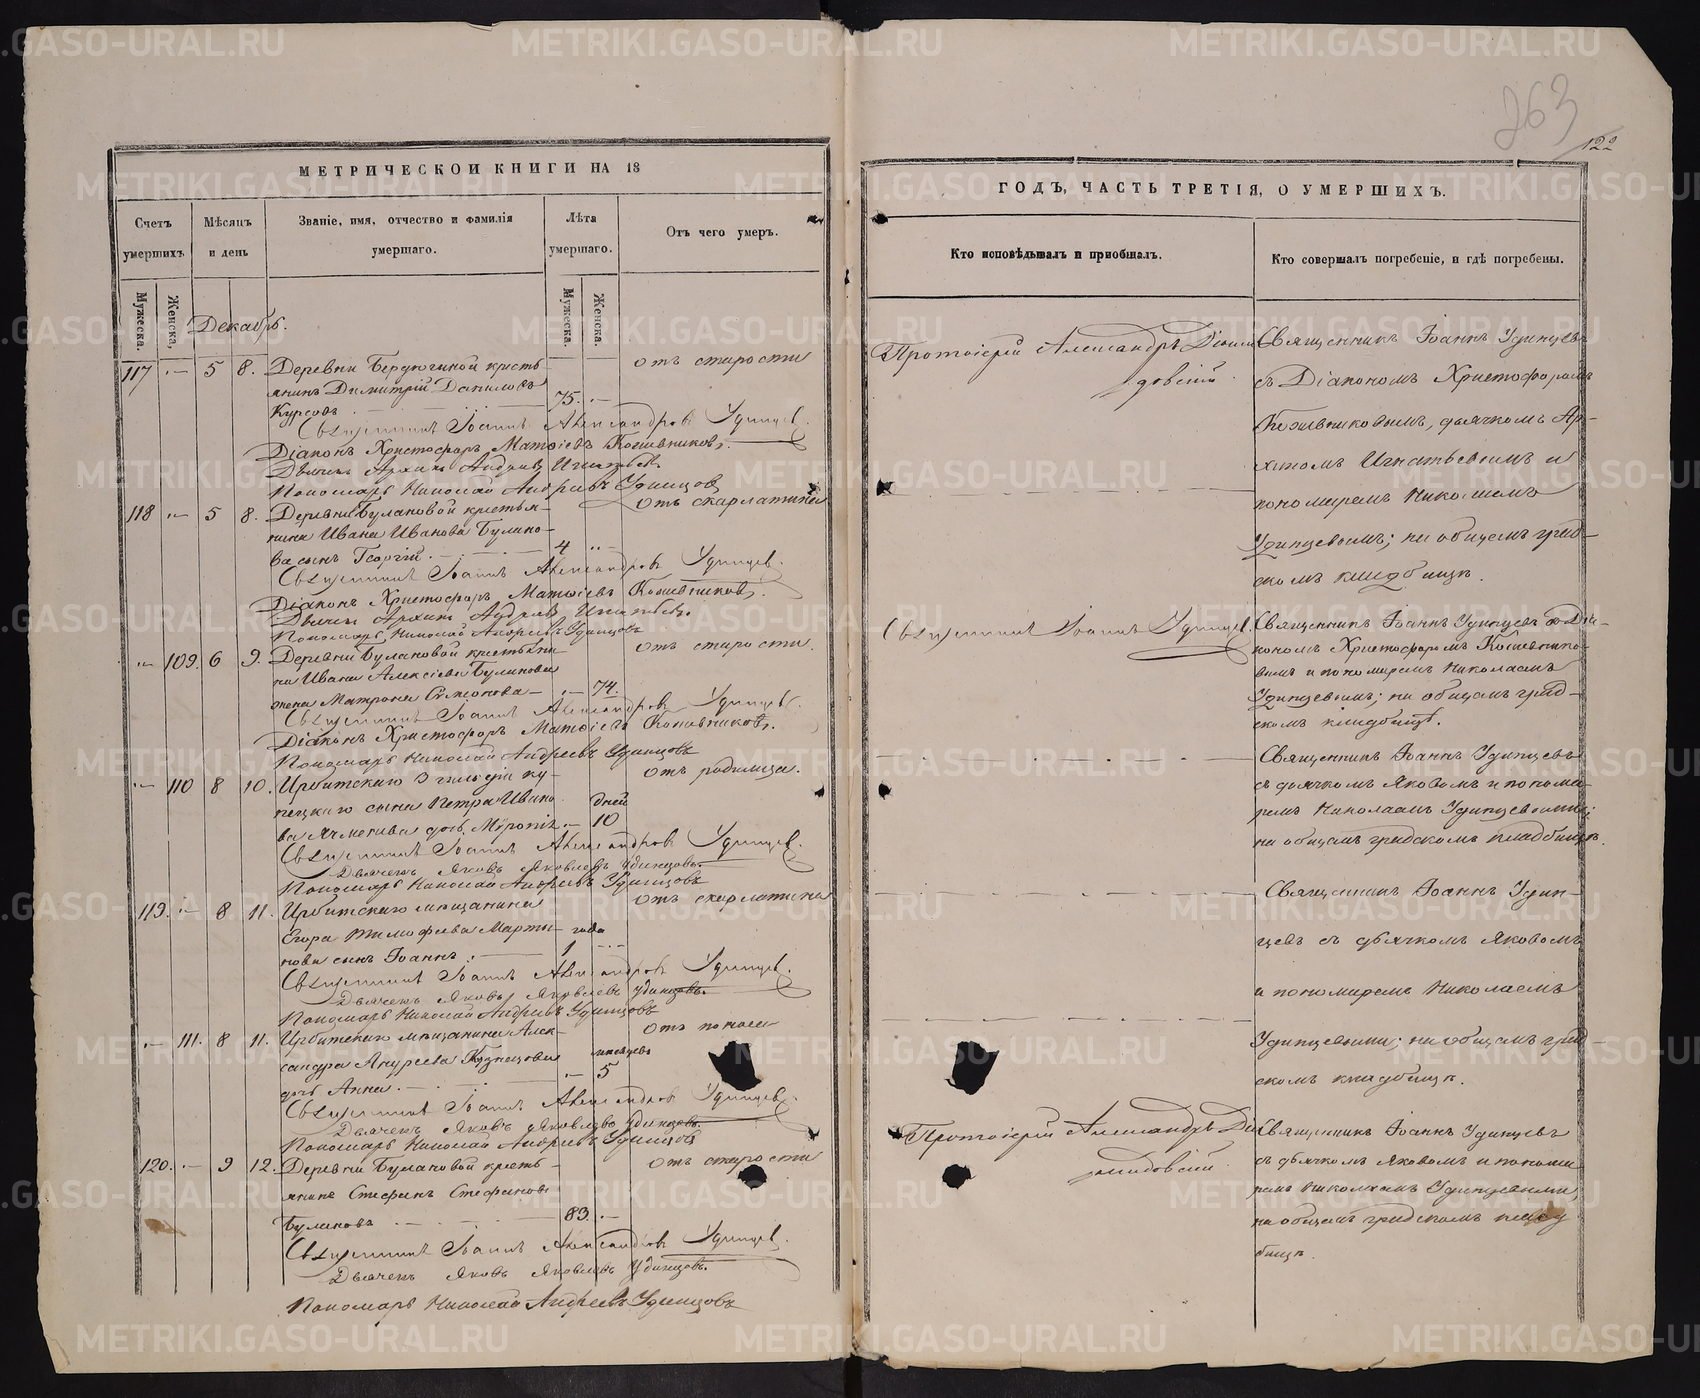 263
122
МЕТРИЧЕСКОЙ КНИГИ НА 18
ГОДЪ, ЧАСТЬ ТРЕТІЯ, О УМЕРШИХЪ.
Счетъ умершихъ
Мѣсяцъ и день
Званіе, имя, отчество и фамилія умершаго.
Лѣта умершаго.
Отъ чего умеръ.
Кто исповѣдывалъ и пріобщалъ.
Кто совершалъ погребеніе, и гдѣ погребены.
Мужеска.
Женска,
Мужеска.
Женска.
Декабрь.
117 — 5 8. Деревни Бердюгиной кресть-
янинъ Димитрій Даниловъ
Курсовъ 75. —
отъ старости
Священникъ Іоаннъ Александровъ Удинцевъ.
Діаконъ Христофоръ Матѳіевъ Кожевниковъ,
Дьячекъ Архипъ Андреевъ Игнатьевъ.
Пономарь Николай Андреевъ Удинцовъ
118 — 5 8. Деревни Булановой крестья-
нина Ивана Иванова Булано-
ва сынъ Георгій 4 „
отъ скарлатины
Священникъ Іоаннъ Александровъ Удинцевъ.
Діаконъ Христофоръ Матѳіевъ Кожевниковъ.
Дьячекъ Архипъ Андреевъ Игнатьевъ.
Пономарь Николай Андреевъ Удинцовъ
— 109. 6 9. Деревни Булановой крестьяни-
на Ивана Алексіева Буланова
жена Матрона Симонова — 74.
отъ старости.
Священникъ Іоаннъ Александровъ Удинцевъ.
Діаконъ Христофоръ Матѳіевъ Кожевниковъ.
Пономарь Николай Андреевъ Удинцовъ
— 110 8 10. Ирбитскаго 3 гильдіи ку-
пецкаго сына Петра Ивано-
ва Ячменева дочь Мѵропія — дней 10
отъ родимца.
Священникъ Іоаннъ Александровъ Удинцевъ.
Дьячекъ Яковъ Яковлевъ Удинцовъ.
Пономарь Николай Андреевъ Удинцовъ
119. — 8 11. Ирбитскаго мещанина
Егора Тимофеева Марты-
нова сынъ Іоаннъ. года 1 —
отъ скарлатины
Священникъ Іоаннъ Александровъ Удинцевъ.
Дьячекъ Яковъ Яковлевъ Удинцовъ.
Пономарь Николай Андреевъ Удинцовъ
— 111. 8 11. Ирбитскаго мещанина Алек-
сандра Андреева Кузнецова
дочь Анна. — месяцевъ 5
отъ поноса
Священникъ Іоаннъ Александровъ Удинцевъ.
Дьячекъ Яковъ Яковлевъ Удинцовъ.
Пономарь Николай Андреевъ Удинцовъ
120. — 9 12. Деревни Булановой кресть-
янинъ Стефанъ Стефановъ
Булановъ 83. —
отъ старости
Священникъ Іоаннъ Александровъ Удинцевъ.
Дьячекъ Яковъ Яковлевъ Удинцовъ.
Пономарь Николай Андреевъ Удинцовъ
Протоіерей Александръ
Священникъ Іоаннъ Удинцевъ
съ Діакономъ Христофоромъ
Кожевниковымъ, дьячкомъ Ар-
хипомъ Игнатьевымъ и
пономаремъ Николаемъ
Удинцевымъ; на общемъ град-
скомъ кладбищѣ.
Священникъ Іоаннъ Удинцевъ.
Священникъ Іоаннъ Удинцевъ съ Діа-
кономъ Христофоромъ Кожевнико-
вымъ и пономаремъ Николаемъ
Удинцевымъ; на общемъ град-
скомъ кладбищѣ.
Священникъ Іоаннъ Удинцевъ
съ дьячкомъ Яковомъ и понома-
ремъ Николаемъ Удинцевыми;
на общемъ градскомъ кладбищѣ.
Священникъ Іоаннъ Удин-
цевъ съ дьячкомъ Яковомъ
и пономаремъ Николаемъ
Удинцевыми; на общемъ град-
скомъ кладбищѣ.
Протоіерей Александръ
Священникъ Іоаннъ Удинцевъ
съ дьячкомъ Яковомъ и понома-
ремъ Николаемъ Удинцевыми,
на общемъ градскомъ клад-
бищѣ.
METRIKI.GASO-URAL.RU